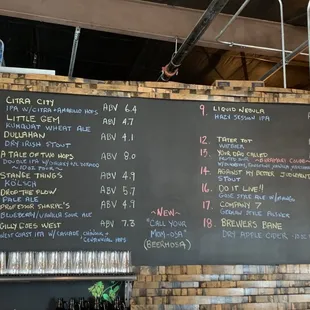 CITRA CITY ABV 6.4
IPA W/ CITRA + AMARILLO HOPS
LITTLE GEM ABV 4.7
KUMQUAT WHEAT ALE
DULLAHAN ABV 4.1
DRY IRISH STOUT
A TALE OF TWO HOPS ABV 8.0
DOUBLE IPA W/
STRANGE THINGS ABV 4.9
KÖLSCH
DROP THE PLOW ABV 5.7
PALE ALE
PROFESSOR SHARPE'S ABV 4.9
BLUEBERRY/VANILLA SOUR ALE
GILLY GOES WEST ABV 7.3
WEST COAST IPA W/ CASCADE, CHINOOK +
CENTENNIAL HOPS
~NEW~
"CALL YOUR
MOM-OSA"
(BEERMOSA)
9. LIQUID NEBULA
HAZY SESSION IPA
12. TATER TOT
13. YOUR DAD CALLED
14. AGAINST MY BETTER JUDGMENT
STOUT
16. DO IT LIVE!!
GOSE STYLE ALE W/
17. COMPANY 7
GERMAN STYLE PILSNER
18. BREWERS BANE
DRY APPLE CIDER